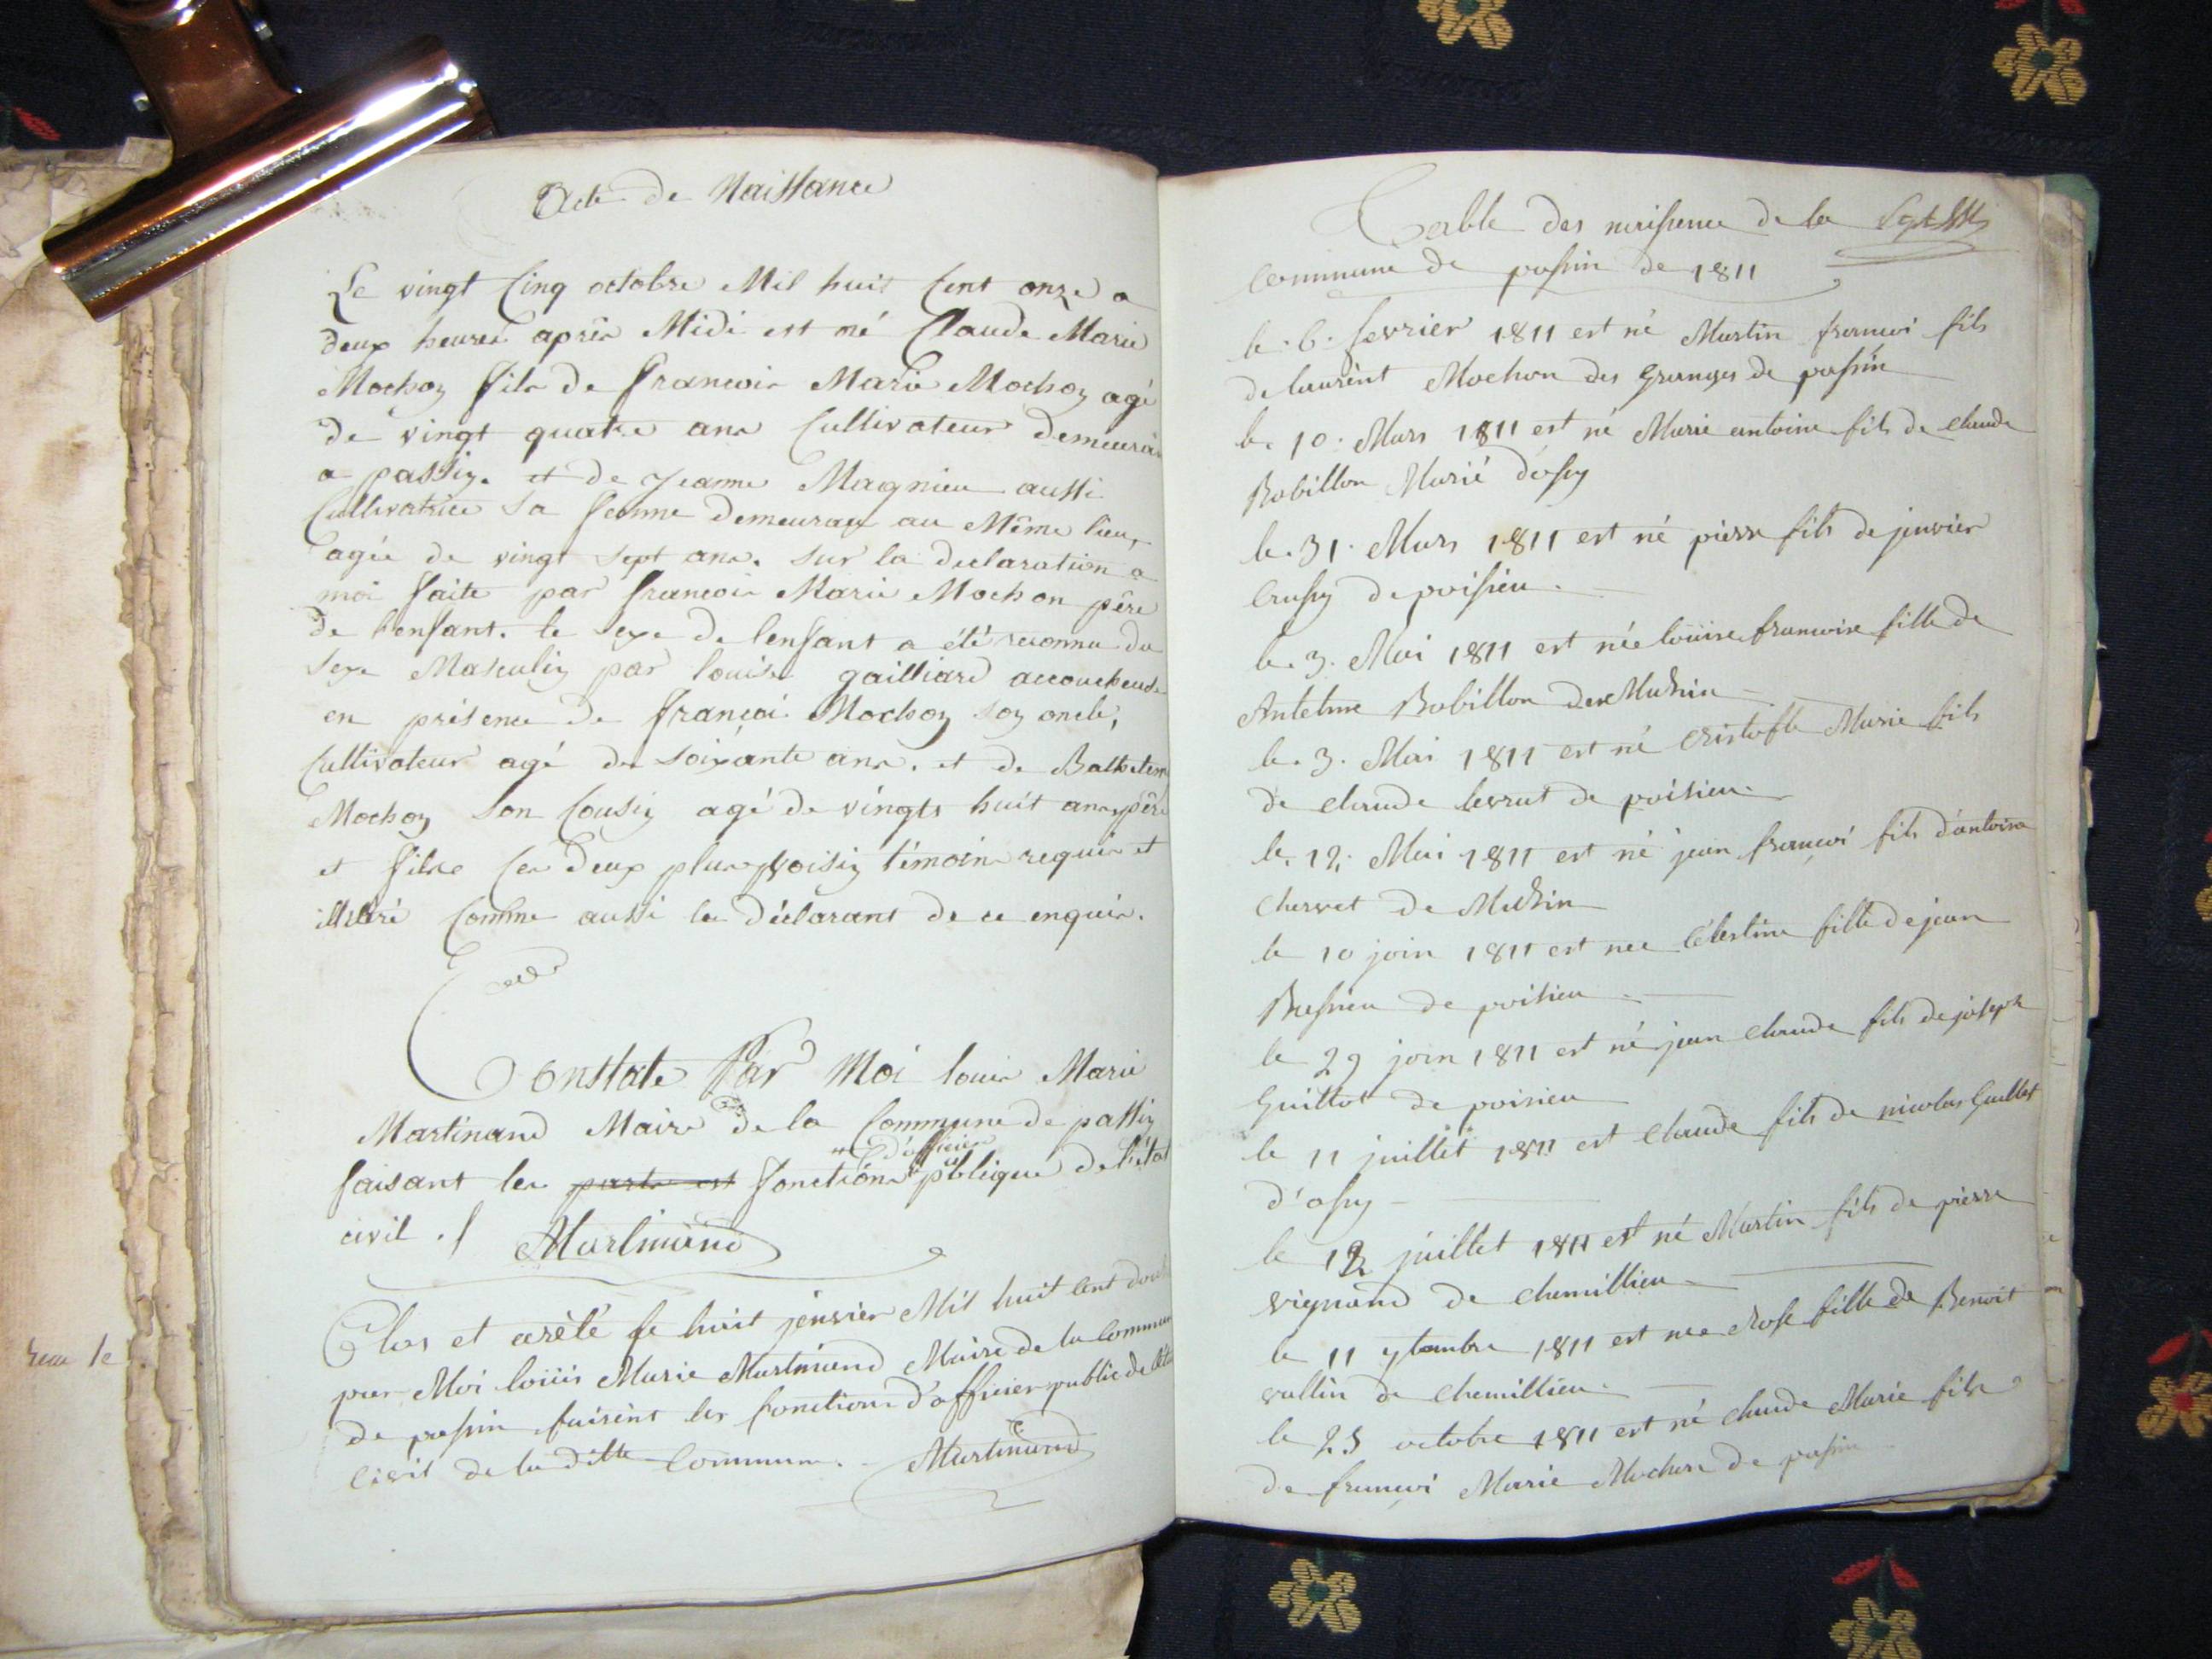 Acte de Naissance
Le vingt Cinq octobre Mil huit Cent onze a
deux heures après Midi est né Claude Marie
Mochon fils de francois Marie Mochon agé
de vingt quatre ans Cultivateur demeuran
a passin. et de jeanne Magnieu aussi
Cultivatrice sa femme demeurant au Même lieu,
agée de vingt sept ans. sur la declaration a
moi faite par francois Marie Mochon père
de lenfant. le sexe de lenfant a été reconnu du
sexe Masculin par louise gailliard accoucheuse
en présence de françoi Mochon son oncle,
Cultivateur agé de soixante ans. et de
Mochon son Cousin agé de vingts huit ans, père
et fils Ces deux plus voisin témoins requis et
Comme aussi le déclarant de ce enquis.
Constate Par Moi louis Marie
Martinand Maire de la Commune de passin
d'officier
faisant les fonctions publique de l'état
civil . Martinand
Clos et arêté le huit jenvier Mil huit cent douze
par Moi loüis Marie Martinand Maire de la Commun
de passin faisént les fonctions d'officier public de létat
civil de la ditte Commune. Martinand
reau le
Table des naissence de la
Commune de passin de 1811
le. 6. fevrier 1811 est né Martin francoi fils
de laurènt Mochon des Granges de passin
le. 10. Mars 1811 est né Marie antoine fils de claude
Bobillon Marié d'ossy
le. 31. Mars 1811 est né pièrre fils de jenvier
Crussy de poissieu.
le. 3. Mai 1811 est née loüise francoise fille de
Antelme Bobillon de
le. 3. Mai 1811 est né cristofle Marie fils
de claude levrat de poisieu
le. 12. Mai 1811 est né jean françoi fils d'antoine
Charvet de
le 10 join 1811 est nee Célestine fille de jean
Bressieu de poisieu
le 29 join 1811 est né jean claude fils de joseph
Guillot de poisieu
le 11 juillet 1811 est Claude fils de nicolas Guillot
d'ossy
le 12 juillet 1811 est né Martin fils de pièrre
vignand de chemillieu
le 11 7tembre 1811 est nee Rose fille de Benoit
vallin de Chemillieu
le 25 octobre 1811 est né claude Marie fils
de françoi Marie Mochon de passin